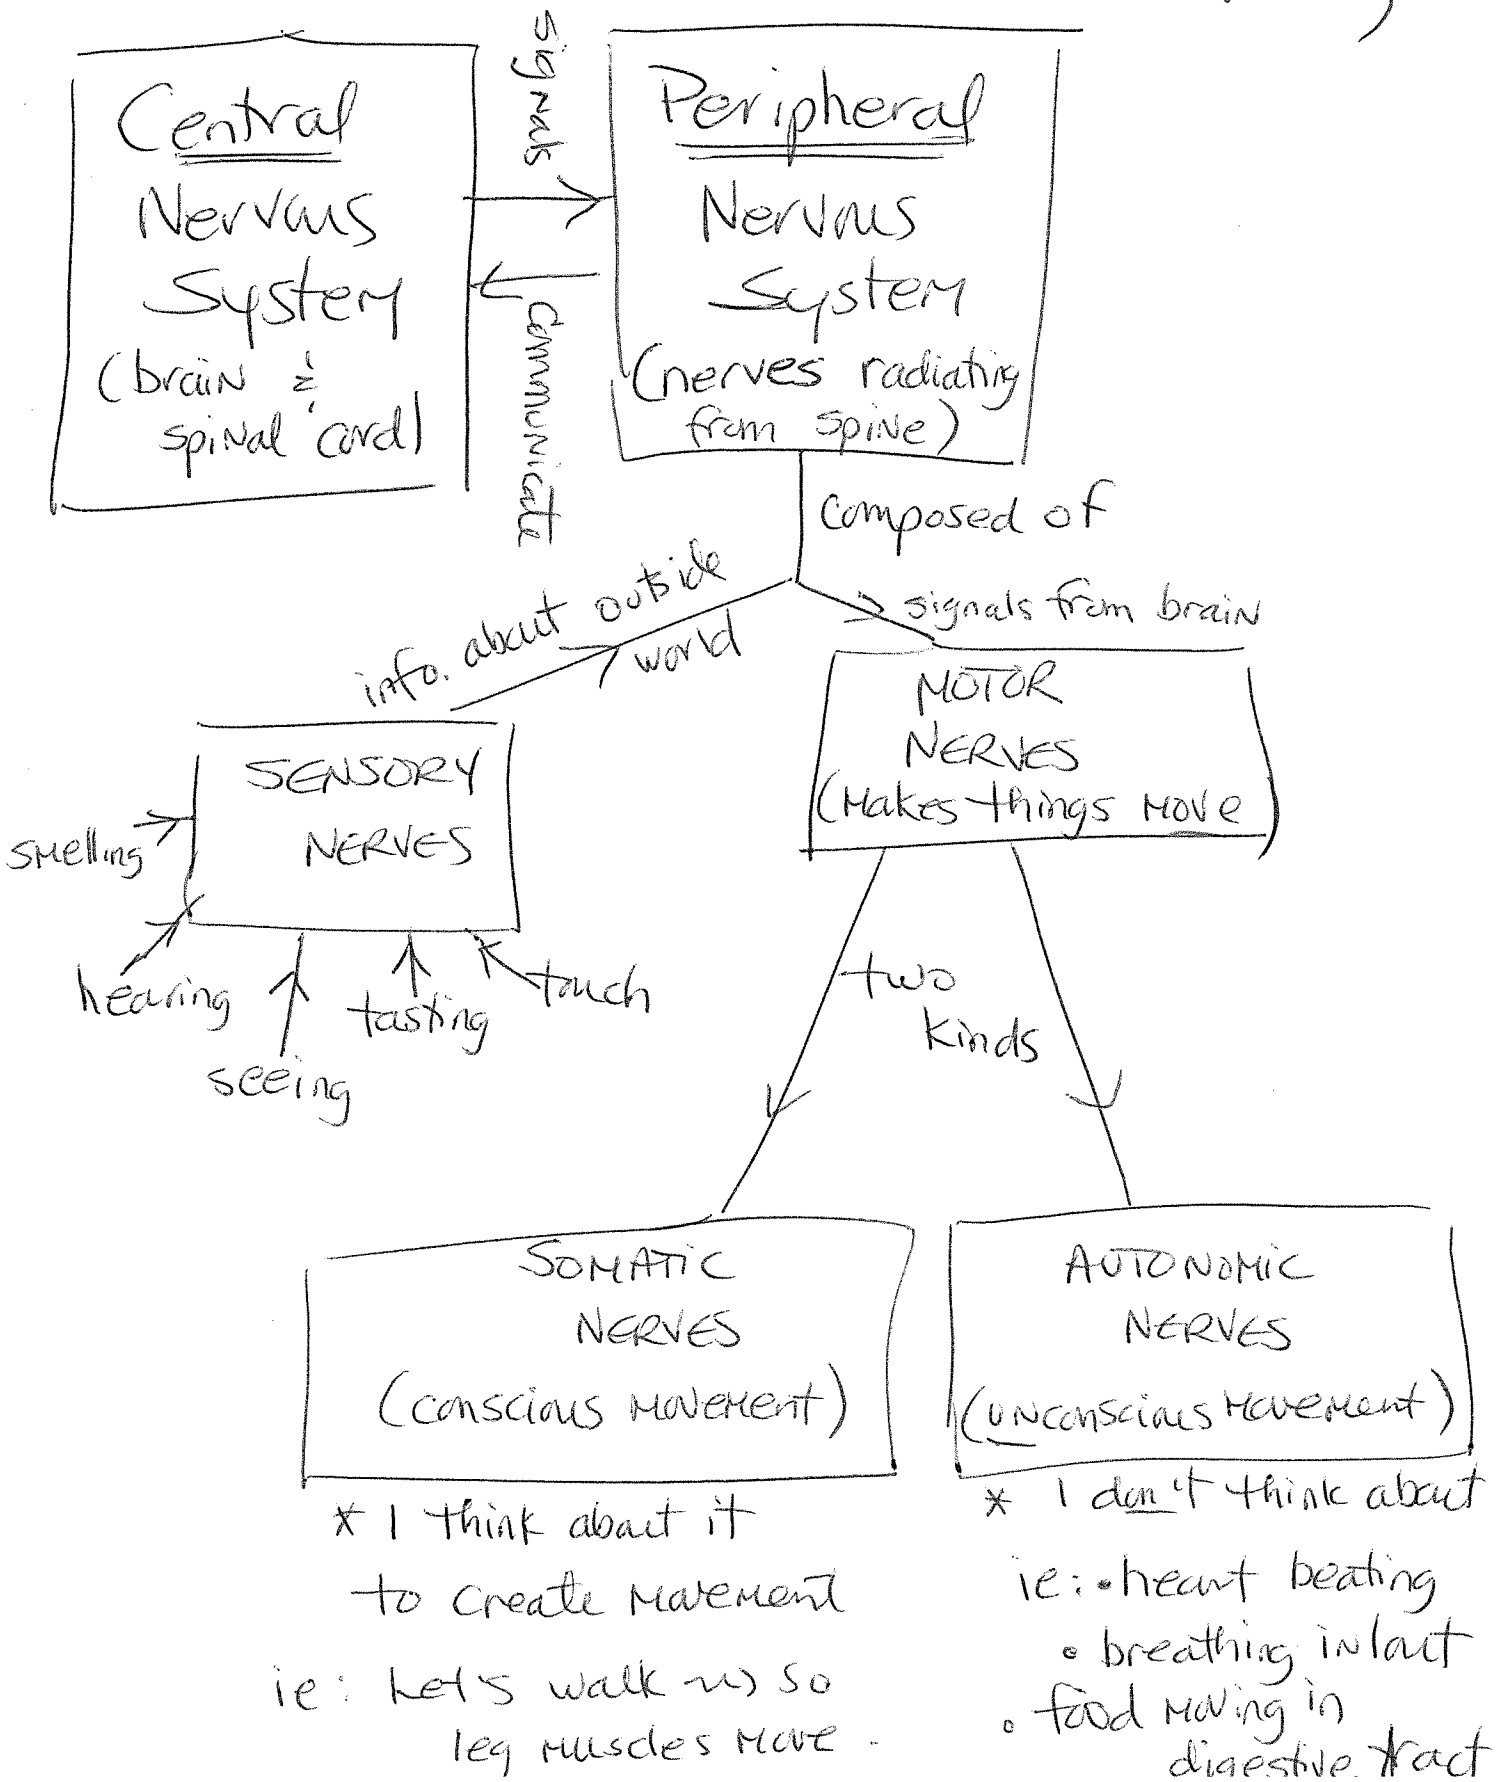 Central
Nervous
System
(brain &
spinal cord)
signals
communicate
Peripheral
Nervous
System
(nerves radiating
from spine)
composed of
info. about outside
world
signals from brain
SENSORY
NERVES
smelling
hearing
seeing
tasting
touch
MOTOR
NERVES
(Makes things move)
two
kinds
SOMATIC
NERVES
(conscious movement)
* I think about it
to create movement
ie: Let's walk so
leg muscles move.
AUTONOMIC
NERVES
(unconscious movement)
* I don't think about
ie: • heart beating
• breathing in/out
• food moving in
digestive tract